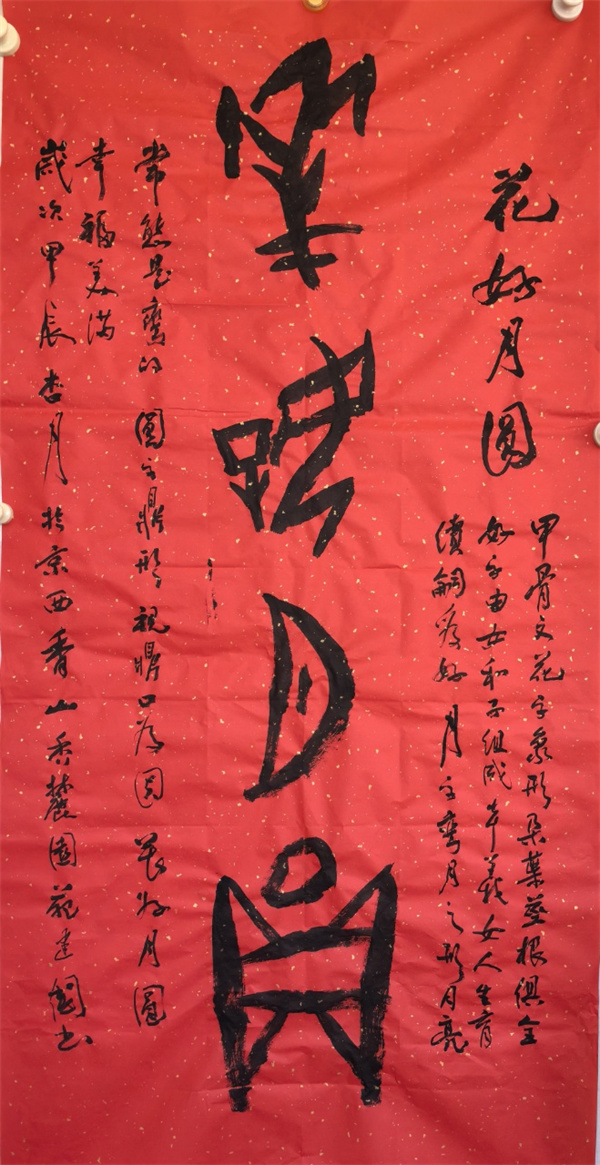 花好月圓
甲骨文花字象形朵葉莖根俱全
好字由女和子组成 本義女人生育
續嗣為好 月字彎月之形月亮
花好月圓
常態是彎的 圓字鼎形視鼎口為圓 花好月圓
幸福美满
歲次甲辰杏月於京西香山香麓園范建國书